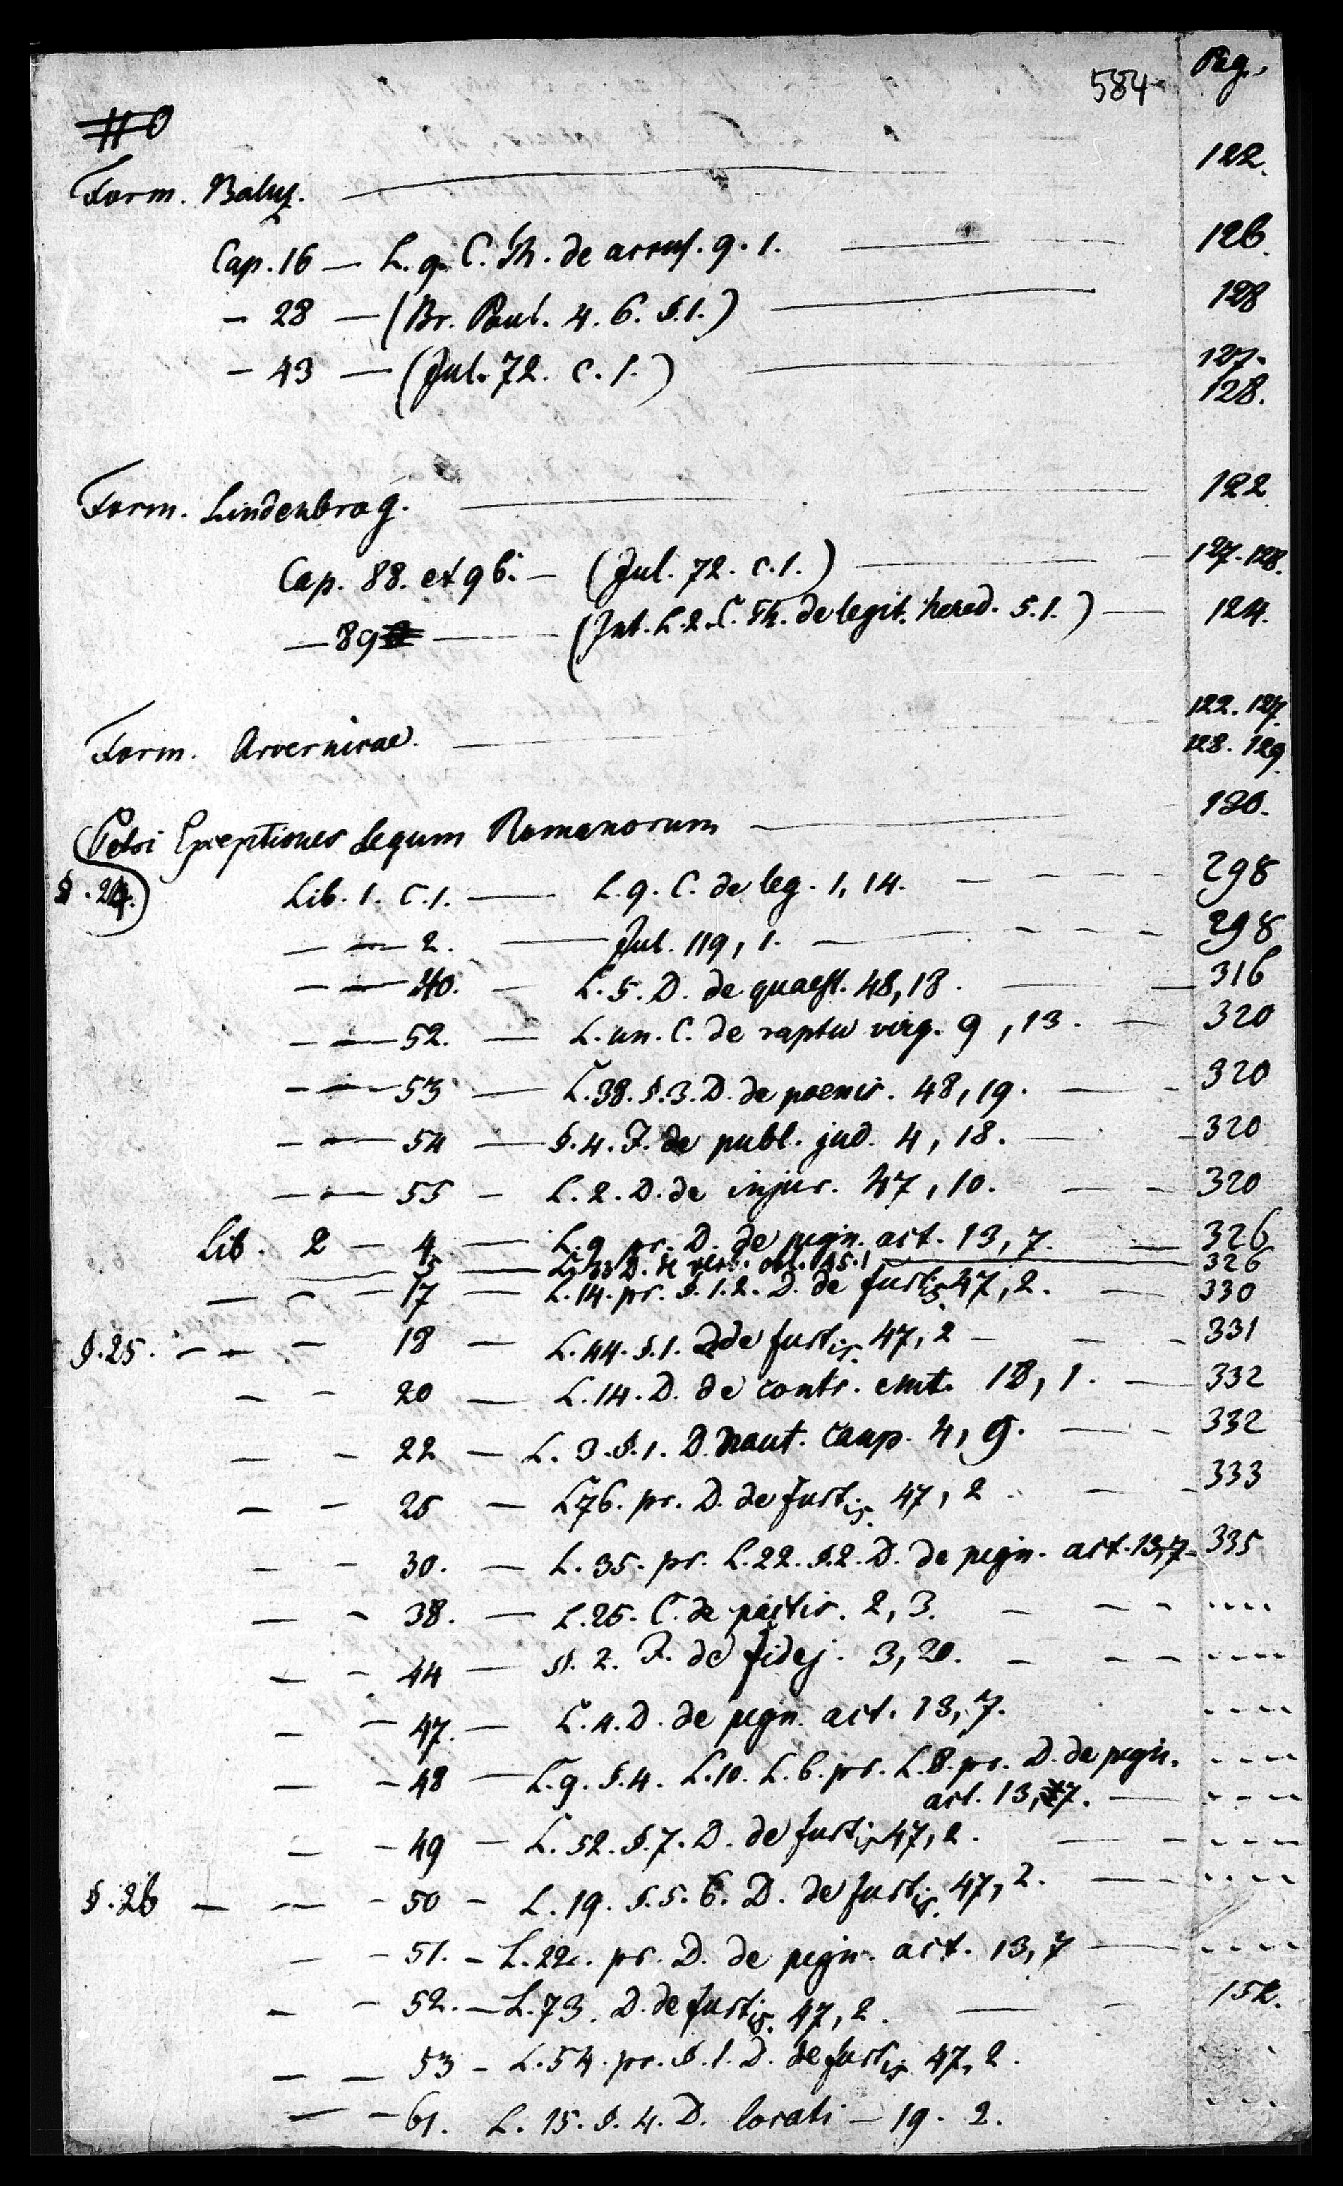 584 Pag.
Form. Baluz. — 122.
Cap. 16 — L. 9. C. Th. de accus. 9. 1. — 126.
— 28 — (Br. Paul. 4. 6. §. 1.) — 128
— 43 — (Jul. 72. c. 1.) — 127.
128.
Form. Lindenbrog. — 122
Cap. 88. et 96. — (Jul. 72. c. 1.) — 127. 128.
— 89 — (Int. L. 2. C. Th. de legit. hered. 5. 1.) — 124.
122. 127.
Form. Arvernicae. — 128. 129.
Petri Exceptiones Legum Romanorum — 130.
§. 24. Lib. 1. C. 1. — L. 9. C. de leg. 1, 14. — 298
— — 2. — Jul. 119, 1. — 298
— — 40. — L. 5. D. de quaest. 48, 18. — 316
— — 52. — L. un. C. de raptu virg. 9, 13. — 320
— — 53 — L. 38. §. 3. D. de poenis. 48, 19. — 320
— — 54 — §. 4. J. de publ. jud. 4, 18. — 320
— — 55 — L. 2. D. de injur. 47, 10. — 320
Lib. 2 — 4 — L. 9 pr. D. de pign. act. 13, 7. — 326
— 5 — L. 33 D. de verb. obl. 45. 1 — 326
— — — 17 — L. 14. pr. §. 1. 2. D. de furtis. 47, 2. — 330
§. 25. — — — 18 — L. 44. §. 1. D de furtis. 47, 2 — 331
— — 20 — L. 14. D. de contr. emt. 18, 1. — 332
— — 22 — L. 3. §. 1. D. naut. caup. 4, 9. — 332
— — 25 — L 76. pr. D. de furtis. 47, 2 — 333
— — 30. — L. 35. pr. L. 22. §. 2. D. de pign. act. 13, 7 — 335
— — 38. — L. 25. C. de pactis. 2, 3. — — — ....
— — 44 — §. 2. J. de fidej. 3, 20. — — — ....
— — 47. — L. 4. D. de pign. act. 13, 7. ....
— — 48 — L. 9. §. 4. L. 10. L. 6. pr. L. 8. pr. D. de pign. ....
act. 13, 7. — ....
— — 49 — L. 52. §. 7. D. de furtis 47, 2. — — ....
§. 26 — — — 50 — L. 19. §. 5. 6. D. de furtis. 47, 2. — ....
— — 51. — L. 22. pr. D. de pign. act. 13, 7 — ....
— — 52. — L. 73. D. de furtis. 47, 2. — — 152.
— — 53 — L. 54. pr. §. 1. D. de furtis 47, 2.
— — 61. L. 15. §. 4. D. locati — 19. 2.